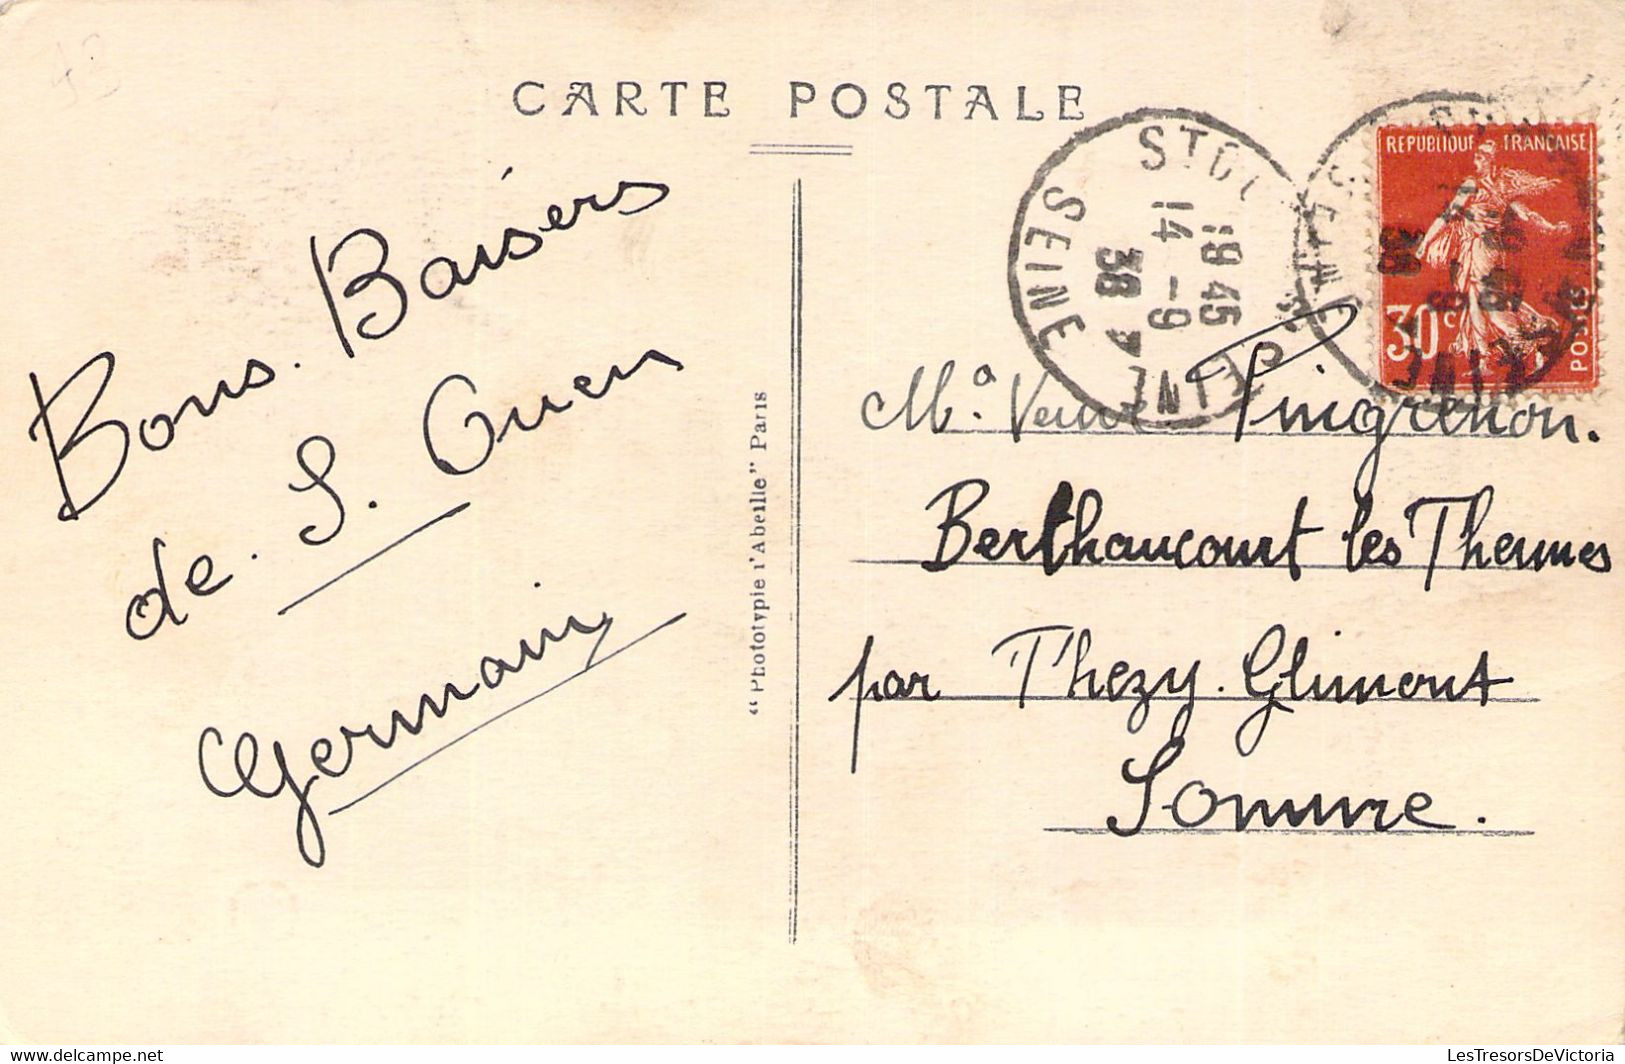 CARTE POSTALE
Bons. Baisers
de. S. Ouen
Germain
"Phototypie l'Abeille" Paris
SEINE
19 45
14 - 9
38
REPUBLIQUE FRANCAISE
30c
POSTES
Mᵃ. Veuve Pingrenon.
Berthaucourt les Thennes
par Thézy. Glimont
Somme.
LesTresorsDeVictoria